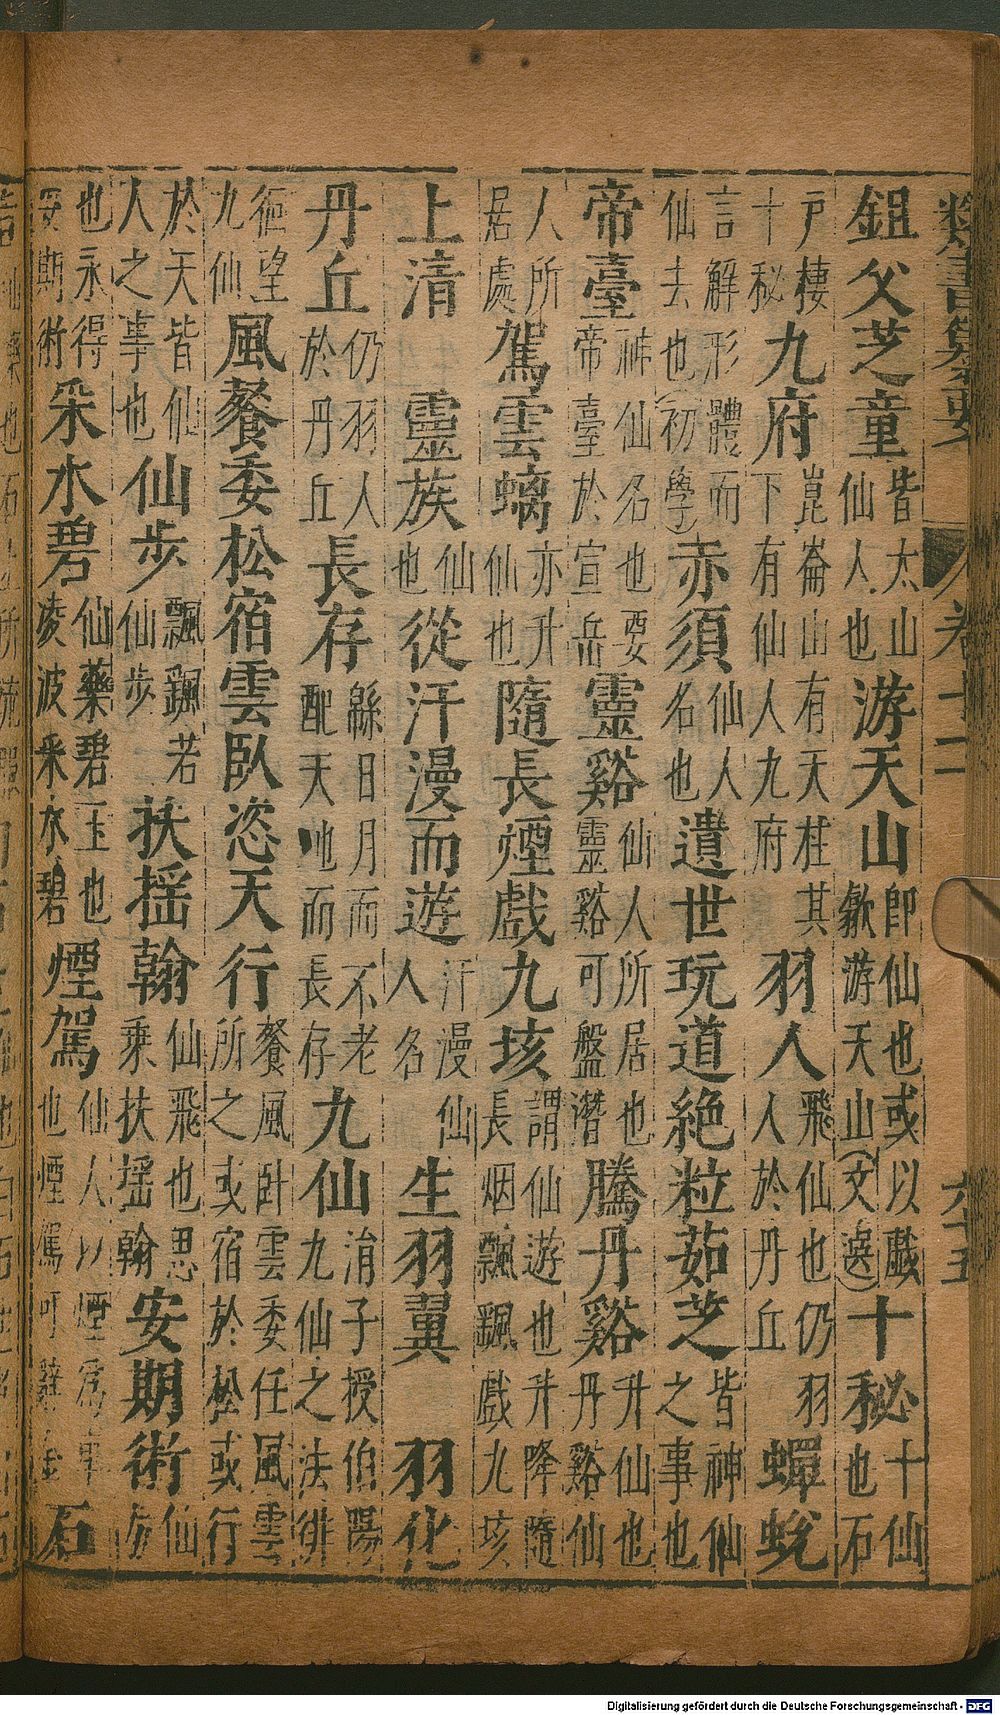 類書纂要 卷十二 六十五
鉏父芝童皆太山仙人也游天山即仙也或以戲歘游天山(文選)十秘十仙也石
戶棲十秘九府崑崙山有天桂其下有仙人九府羽人飛仙也仍羽人於丹丘蟬蛻
言解形體而仙去也(初學)赤須仙人名也遺世玩道絕粒茹芝皆神仙之事也
帝臺神仙名也要帝臺於宣岳靈谿仙人所居也靈谿可盤潛騰丹谿升仙也丹谿仙
人所居處駕雲螭亦升仙也隨長煙戲九垓謂仙遊也升降隨長烟飄颻戲九垓
上清 靈族仙也從汗漫而遊汗漫仙人名生羽翼 羽化
丹丘仍羽人於丹丘長存緜日月而不老配天地而長存九仙淯子授伯陽九仙之法俳
徊望九仙風餐委松宿雲臥恣天行餐風卧雲委任風雲所之或宿於松或行
於天皆仙人之事也仙步飄颻若仙步扶搖翰仙飛也思乘扶搖翰安期術仙方
也永得安期術采水碧仙藥碧玉也凌波采水碧煙駕仙人以煙為車也煙駕可辭金石